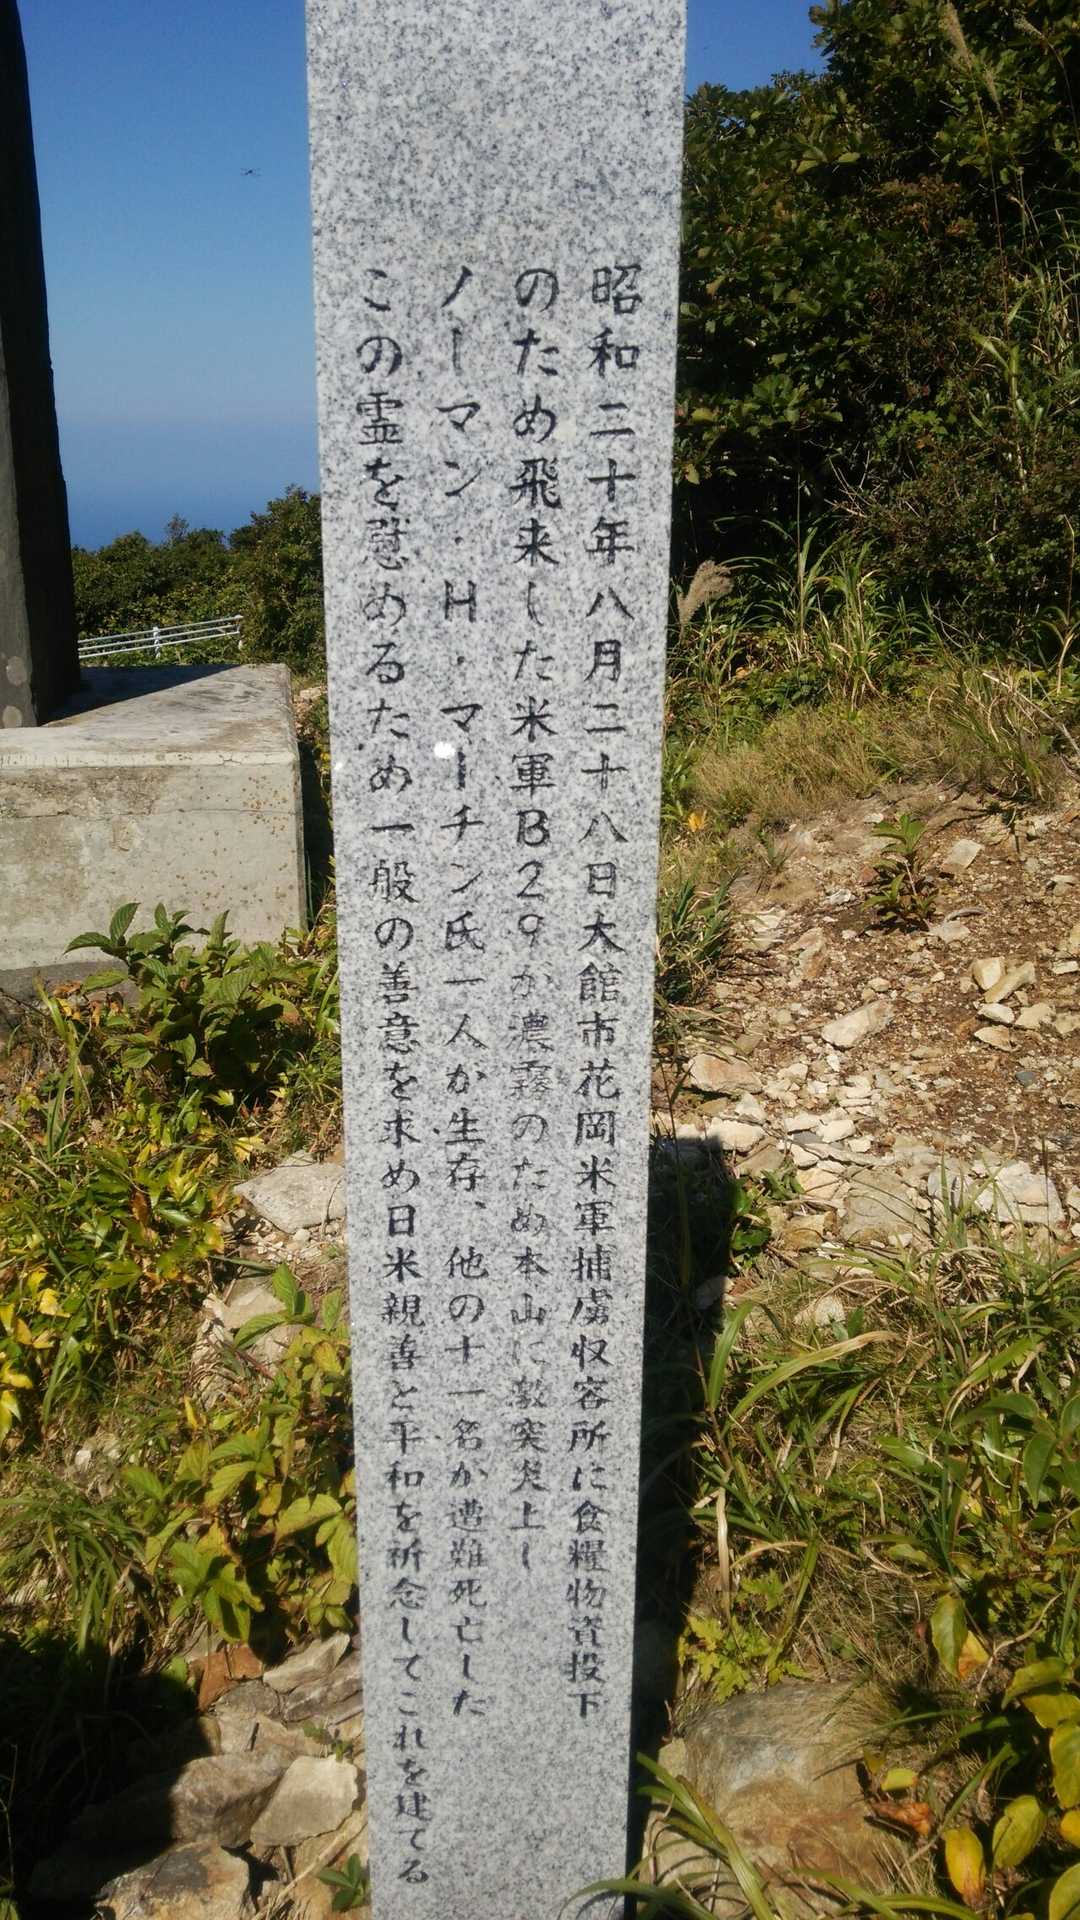 昭和二十年八月二十八日大館市花岡米軍捕虜収容所に食糧物資投下
のため飛来した米軍B29が濃霧のため本山に激突炎上し
ノーマン・H・マーチン氏一人が生存、他の十一名が遭難死亡した
この霊を慰めるため一般の善意を求め日米親善と平和を祈念してこれを建てる